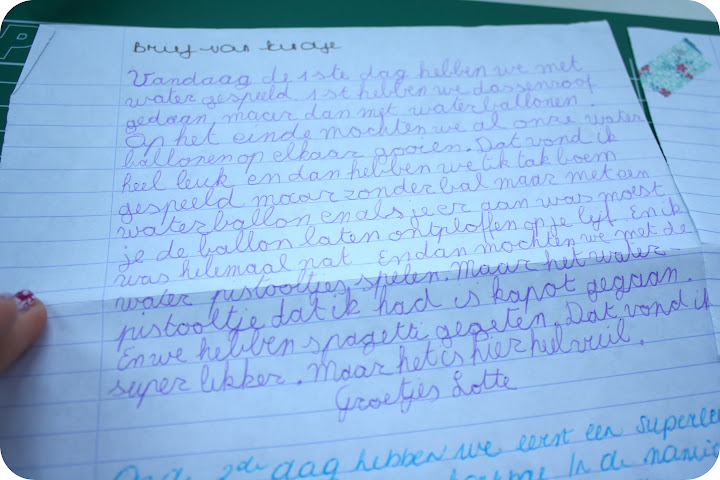 Brief van kusje
Vandaag de 1ste dag hebben we met
water gespeeld. 1st hebben we dassenroof
gedaan, maar dan met waterballonen.
Op het einde mochten we al onze water
ballonen op elkaar gooien. Dat vond ik
heel leuk en dan hebben we tik tak boem
gespeeld maar zonder bal maar met een
waterballon en als je er aan was moest
je de ballon laten ontploffen op je lijf. En ik
was helemaal nat. En dan mochten we met de
water pistooltjes spelen. Maar het water-
pistooltje dat ik had is kapot gegaan.
En we hebben spagetti gegeten. Dat vond ik
super lekker. Maar het is hier heel vuil.
Groetjes Lotte
2de dag hebben we eerst een
In de